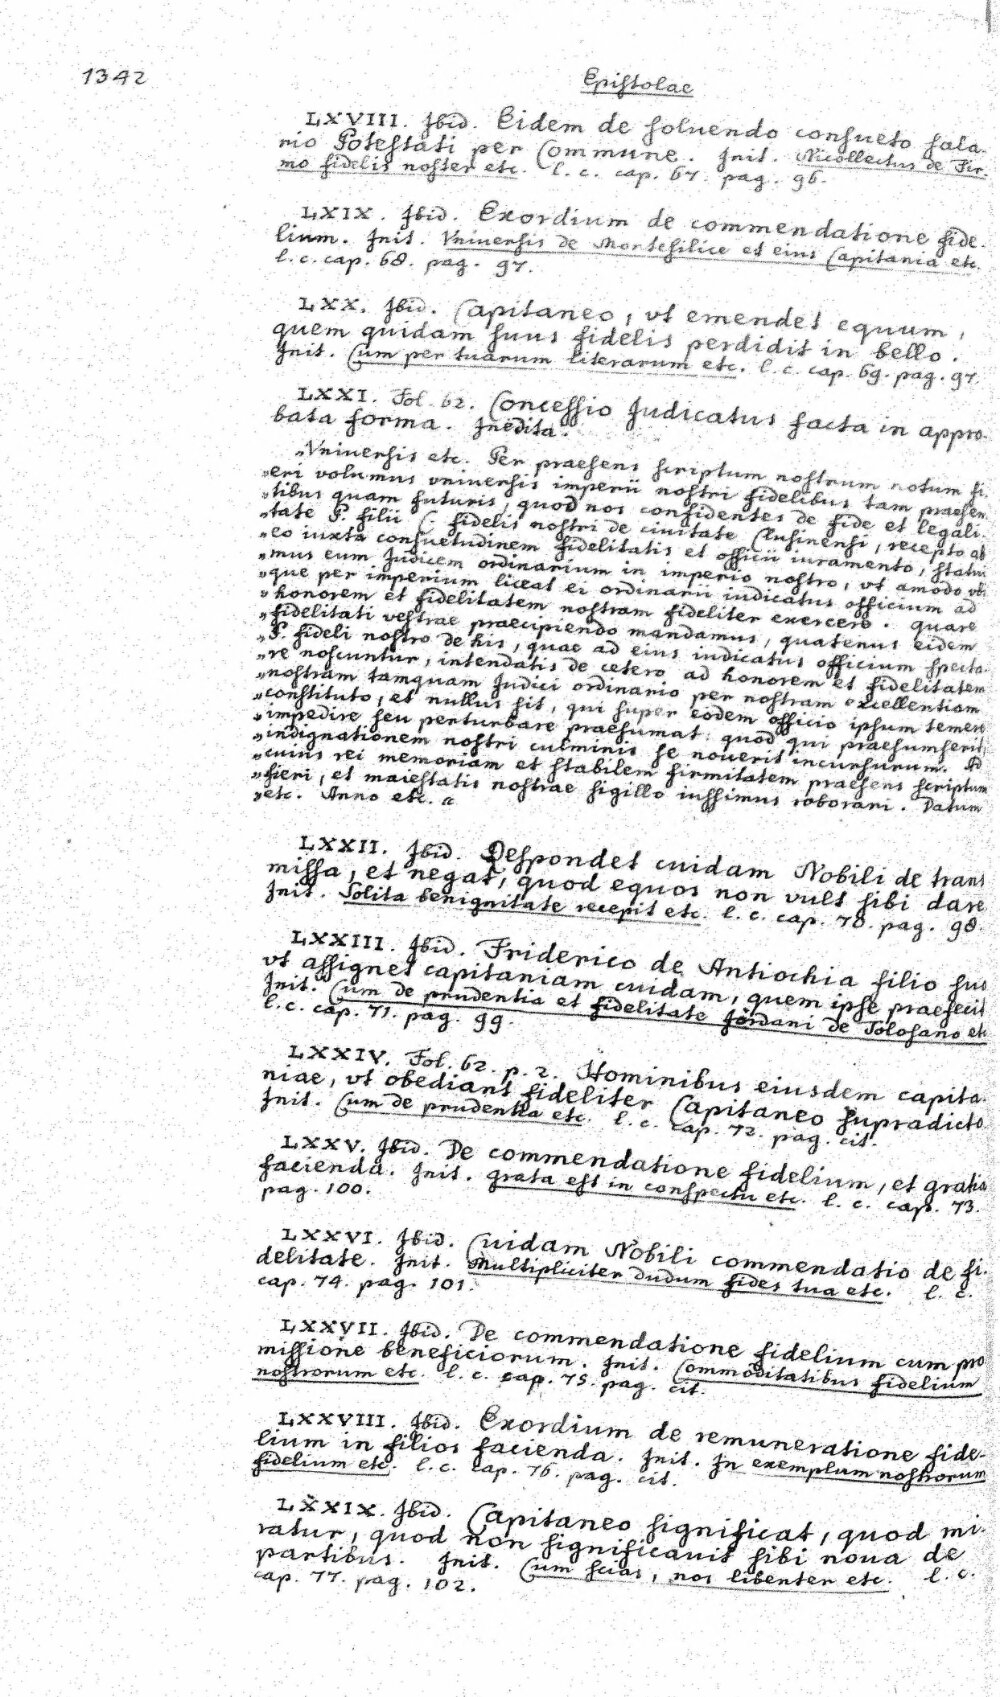 1342
Epistolae
LXVIII. Ibid. Eidem de soluendo consueto sala-
rio Potestati per Commune. Init. Nicollectus de Fir-
mo fidelis noster etc. l. c. cap. 67. pag. 96.
LXIX. Ibid. Exordium de commendatione fide-
lium. Init. Vniuersis de Montesilice et eius Capitania etc.
l. c. cap. 68. pag. 97.
LXX. Ibid. Capitaneo, vt emendet equum,
quem quidam suus fidelis perdidit in bello.
Init. Cum per tuarum literarum etc. l. c. cap. 69. pag. 97.
LXXI. Fol. 62. Concessio Iudicatus facta in appro-
bata forma. Inedita.
„Vniuersis etc. Per praesens scriptum nostrum notum fi-
„eri volumus vniuersis imperii nostri fidelibus tam praesen-
„tibus quam futuris, quod nos confidentes de fide et legali-
„tate P. filii C. fidelis nostri de ciuitate Clusinensi, recepto ab
„eo iuxta consuetudinem fidelitatis et officii iuramento, statui-
„mus eum Iudicem ordinarium in imperio nostro, vt amodo vbi-
„que per imperium liceat ei ordinarii iudicatus officium ad
„honorem et fidelitatem nostram fideliter exercere. Quare
„fidelitati vestrae praecipiendo mandamus, quatenus eidem
„P. fideli nostro de his, quae ad eius iudicatus officium specta-
„re noscuntur, intendatis de cetero ad honorem et fidelitatem
„nostram tamquam Iudici ordinario per nostram excellentiam
„constituto, et nullus sit, qui super eodem officio ipsum temere
„impedire seu perturbare praesumat: quod qui praesumserit
„indignationem nostri culminis se nouerit incursurum. Ad
„cuius rei memoriam et stabilem firmitatem praesens scriptum
„fieri, et maiestatis nostrae sigillo iussimus roborari. Datum
„etc. Anno etc. „
LXXII. Ibid. Respondet cuidam Nobili de trans
missa, et negat, quod equos non vult sibi dare
Init. Solita benignitate recepit etc. l. c. cap. 70. pag. 98.
LXXIII. Ibid. Friderico de Antiochia filio suo
vt assignet capitaniam cuidam, quem ipse praefecit
Init. Cum de prudentia et fidelitate Jordani de Tolosano etc
l. c. cap. 71. pag. 99.
LXXIV. Fol. 62. p. 2. Hominibus eiusdem capita-
niae, vt obediant fideliter Capitaneo supradicto
Init. Cum de prudentia etc. l. c. cap. 72. pag. cit.
LXXV. Ibid. De commendatione fidelium, et gratia
facienda. Init. grata est in conspectu etc. l. c. cap. 73.
pag. 100.
LXXVI. Ibid. Cuidam Nobili commendatio de fi-
delitate. Init. Multipliciter dudum fides tua etc. l. c.
cap. 74. pag. 101.
LXXVII. Ibid. De commendatione fidelium cum pro
missione beneficiorum. Init. Commoditatibus fidelium
nostrorum etc. l. c. cap. 75. pag. cit.
LXXVIII. Ibid. Exordium de remuneratione fide-
lium in filios facienda. Init. In exemplum nostrorum
fidelium etc. l. c. cap. 76. pag. cit.
LXXIX. Ibid. Capitaneo significat, quod mi-
ratur, quod non significauit sibi noua de
partibus. Init. Cum scias, nos libenter etc. l. c.
cap. 77. pag. 102.